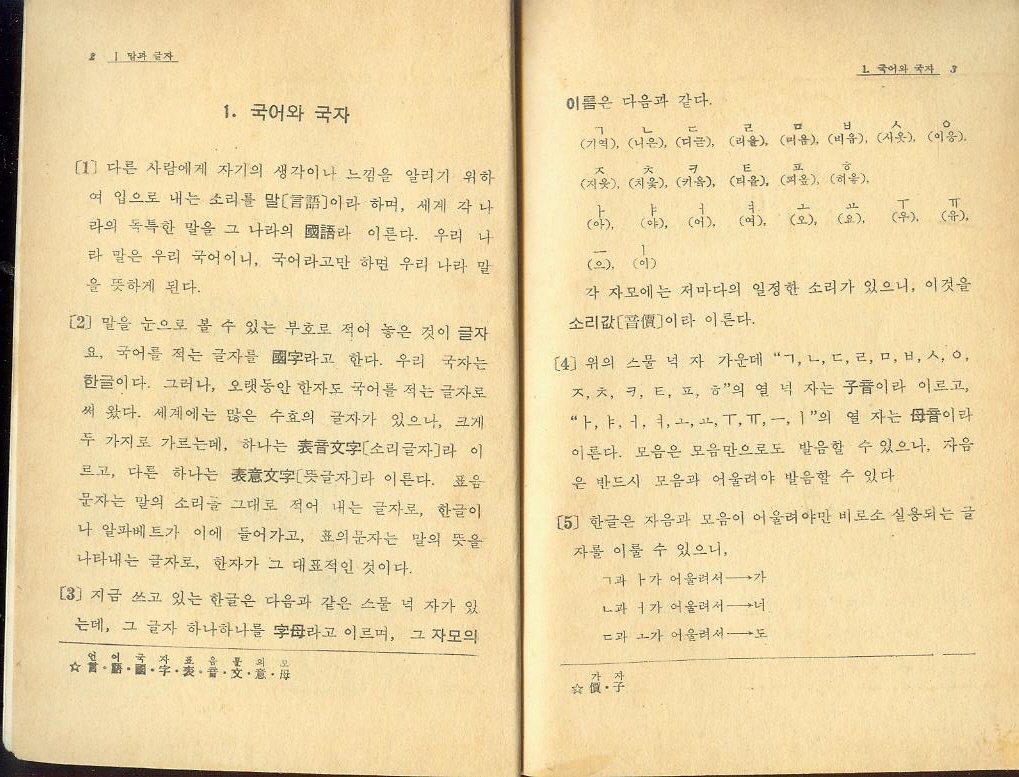 2 Ⅰ 말과 글자
1. 국어와 국자
[1] 다른 사람에게 자기의 생각이나 느낌을 알리기 위하
여 입으로 내는 소리를 말[言語]이라 하며, 세계 각 나
라의 독특한 말을 그 나라의 國語라 이른다. 우리 나
라 말은 우리 국어이니, 국어라고만 하면 우리 나라 말
을 뜻하게 된다.
[2] 말을 눈으로 볼 수 있는 부호로 적어 놓은 것이 글자
요, 국어를 적는 글자를 國字라고 한다. 우리 국자는
한글이다. 그러나, 오랫동안 한자도 국어를 적는 글자로
써 왔다. 세계에는 많은 수효의 글자가 있으나, 크게
두 가지로 가르는데, 하나는 表音文字[소리글자]라 이
르고, 다른 하나는 表意文字[뜻글자]라 이른다. 표음
문자는 말의 소리를 그대로 적어 내는 글자로, 한글이
나 알파베트가 이에 들어가고, 표의문자는 말의 뜻을
나타내는 글자로, 한자가 그 대표적인 것이다.
[3] 지금 쓰고 있는 한글은 다음과 같은 스물 넉 자가 있
는데, 그 글자 하나하나를 字母라고 이르며, 그 자모의
언 어 국 자 표 음 문 의 모
☆ 言·語·國·字·表·音·文·意·母
1. 국어와 국자 3
이름은 다음과 같다.
ㄱ ㄴ ㄷ ㄹ ㅁ ㅂ ㅅ ㅇ
(기역), (니은), (디귿), (리을), (미음), (비읍), (시옷), (이응),
ㅈ ㅊ ㅋ ㅌ ㅍ ㅎ
(지읒), (치읓), (키읔), (티읕), (피읖), (히읗),
ㅏ ㅑ ㅓ ㅕ ㅗ ㅛ ㅜ ㅠ
(아), (야), (어), (여), (오), (요), (우), (유),
ㅡ ㅣ
(으), (이)
각 자모에는 저마다의 일정한 소리가 있으니, 이것을
소리값[音價]이라 이르다.
[4] 위의 스물 넉 자 가운데 “ㄱ, ㄴ, ㄷ, ㄹ, ㅁ, ㅂ, ㅅ, ㅇ,
ㅈ, ㅊ, ㅋ, ㅌ, ㅍ, ㅎ”의 열 넉 자는 子音이라 이르고,
“ㅏ, ㅑ, ㅓ, ㅕ, ㅗ, ㅛ, ㅜ, ㅠ, ㅡ, ㅣ”의 열 자는 母音이라
이른다. 모음은 모음만으로도 발음할 수 있으나, 자음
은 반드시 모음과 어울려야 발음할 수 있다
[5] 한글은 자음과 모음이 어울려야만 비로소 실용되는 글
자를 이룰 수 있으니,
ㄱ과 ㅏ가 어울려서→가
ㄴ과 ㅓ가 어울려서→너
ㄷ과 ㅗ가 어울려서→도
가 자
☆ 價·子